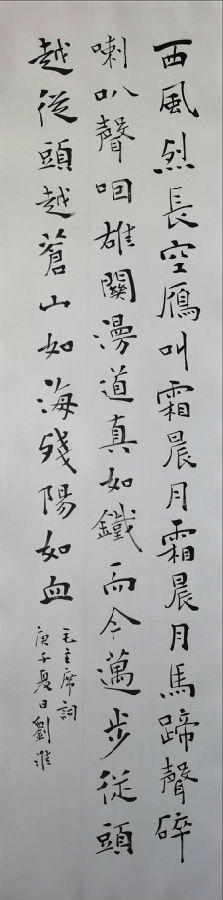 西風烈長空鴈叫霜晨月霜晨月馬蹄聲碎
喇叭聲咽雄關漫道真如鐵而今邁步從頭
越從頭越蒼山如海殘陽如血
毛主席詞
庚子夏日劉淮